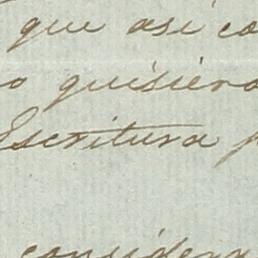 que así co
o quisiera
Escritura p
considera